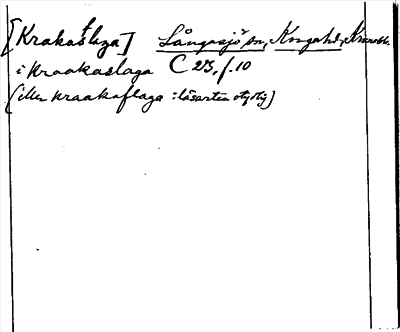 [Krakaslaga] Långasjö sn, Konga hd, Kronobl.
i kraakaslaga C 23, f. 10
(eller kraakaflaga: läsarten otydlig)